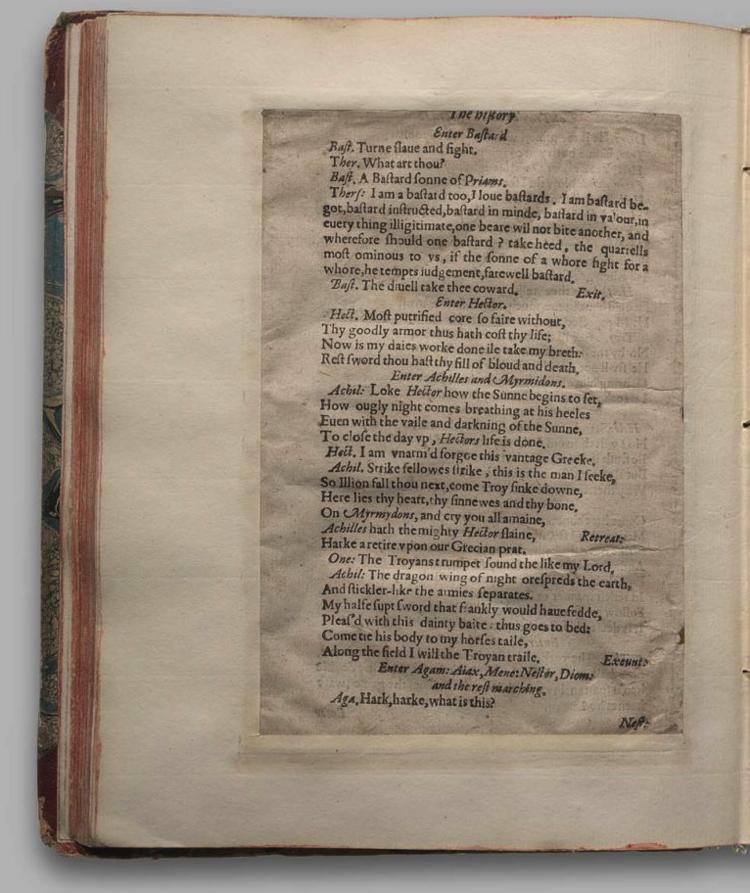 The hiſtory
Enter Baſtard
Baſt. Turne ſlaue and fight.
Ther. What art thou?
Baſt. A Baſtard ſonne of Priams.
Therſ: I am a baſtard too, I loue baſtards. I am baſtard be-
got, baſtard inſtructed, baſtard in minde, baſtard in valour, in
euery thing illigitimate, one beare wil not bite another, and
wherefore ſhould one baſtard? take heed, the quarrells
moſt ominous to vs, if the ſonne of a whore fight for a
whore, he tempts iudgement, farewell baſtard.
Baſt. The diuell take thee coward. Exit.
Enter Hector.
Hect. Moſt putrified core ſo faire without,
Thy goodly armor thus hath coſt thy life;
Now is my daies worke done ile take my breth:
Reſt ſword thou haſt thy fill of bloud and death,
Enter Achilles and Myrmidons.
Achil: Loke Hector how the Sunne begins to ſet,
How ougly night comes breathing at his heeles
Euen with the vaile and darkning of the Sunne,
To cloſe the day vp, Hectors life is done.
Hect. I am vnarm'd forgoe this vantage Greeke.
Achil. Strike fellowes ſtrike, this is the man I ſeeke,
So Illion fall thou next, come Troy ſinke downe,
Here lies thy heart, thy ſinnewes and thy bone.
On Myrmydons, and cry you all amaine,
Achilles hath the mighty Hector ſlaine, Retreat:
Harke a retire vpon our Grecian prat.
One: The Troyans trumpet ſound the like my Lord,
Achil: The dragon wing of night oreſpreds the earth,
And ſtickler-like the armies ſeparates.
My halfe ſupt ſword that frankly would haue fedde,
Pleaſ'd with this dainty baite: thus goes to bed:
Come tie his body to my horſes taile,
Along the field I will the Troyan traile. Exeunt:
Enter Agam: Aiax, Mene: Neſtor, Diom:
and the reſt marching.
Aga, Hark, harke, what is this?
Neſt: